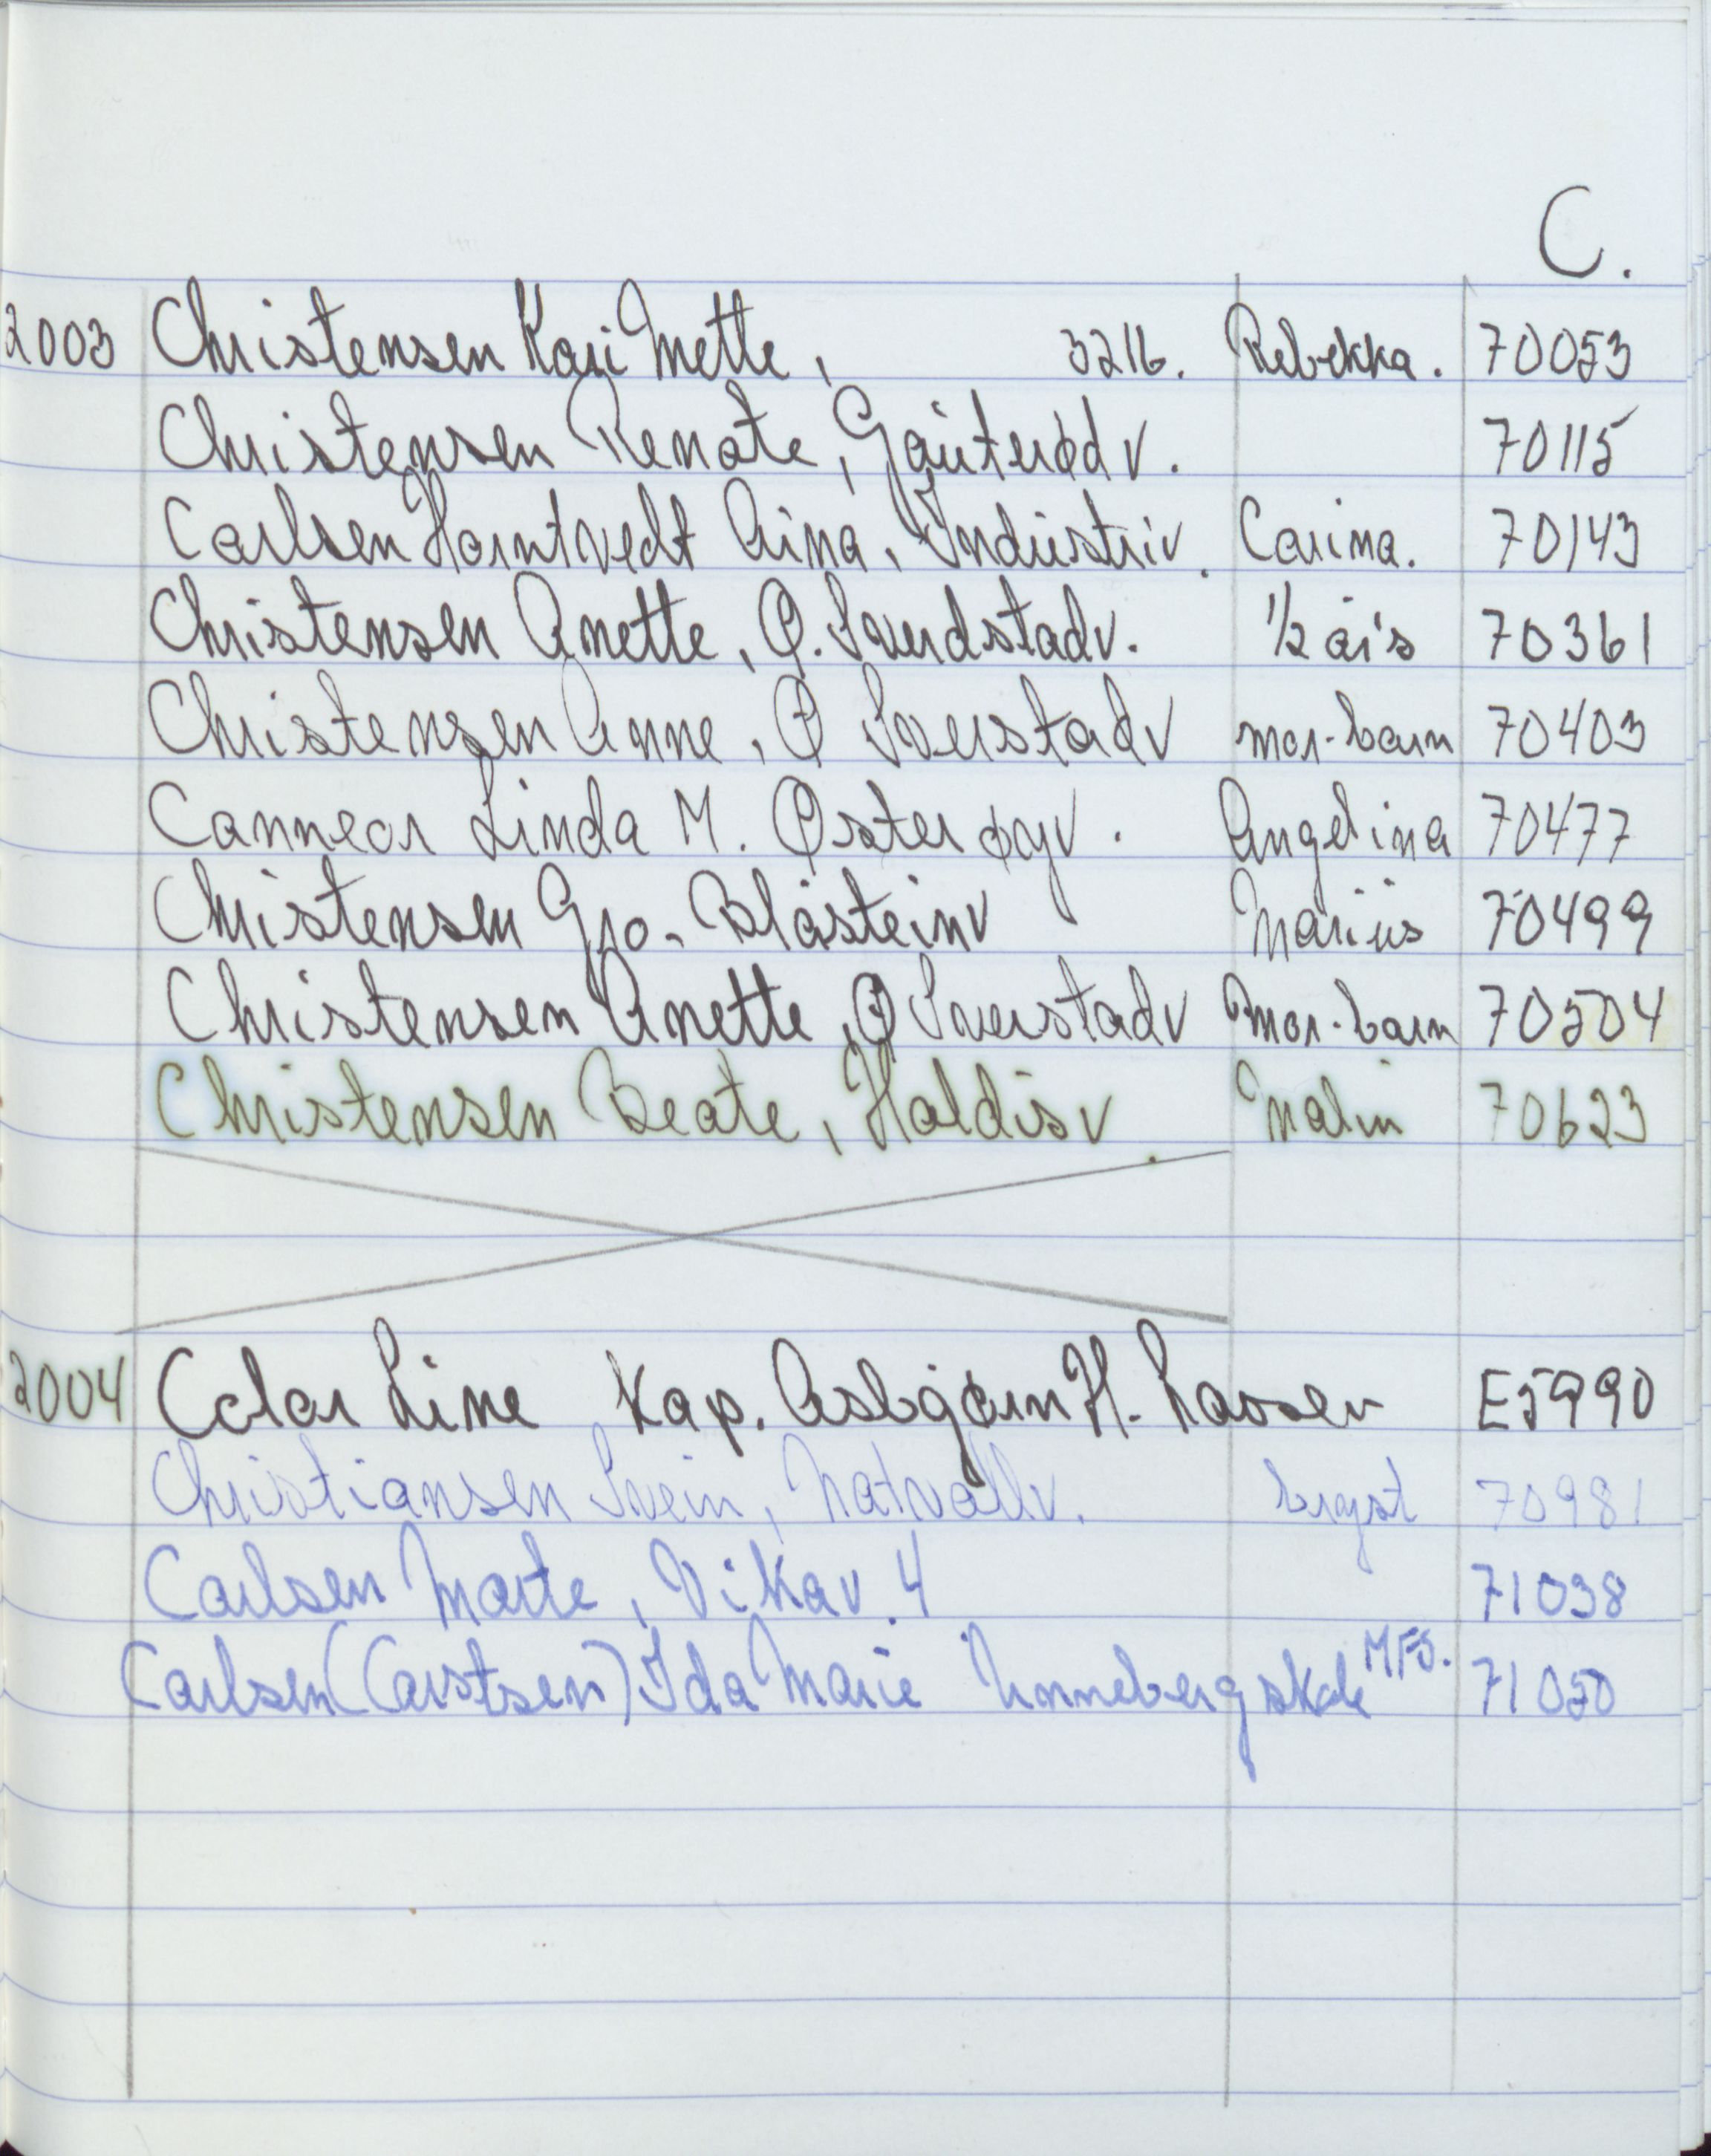 C.
2003 Christensen Kari Mette, 3216. Rebekka. 70053
Christensen Renate, Gauterødv. 70115
Carlsen Horntvedt Aina, Industriv. Carina. 70143
Christensen Anette, Ø. Sverdstadv. 1/2 års 70361
Christensen Anne, Ø Sverstadv mor-barn 70403
Connear Linda M. Øster øyv. Angelina 70477
Christensen Gro. Blåsteinv Marius 70499
Christensen Anette, Ø Sverstadv mor-barn 70504
Christensen Beate, Haldisv. Malin 70623
2004 Color Line Kap. Asbjørn H. Lassen E5990
Christiansen Svein, bryst 70981
Carlsen Marte, Vikav. 4 71038
Carlsen (Carstsen) Ida Marie Unneberg skole MFS. 71050